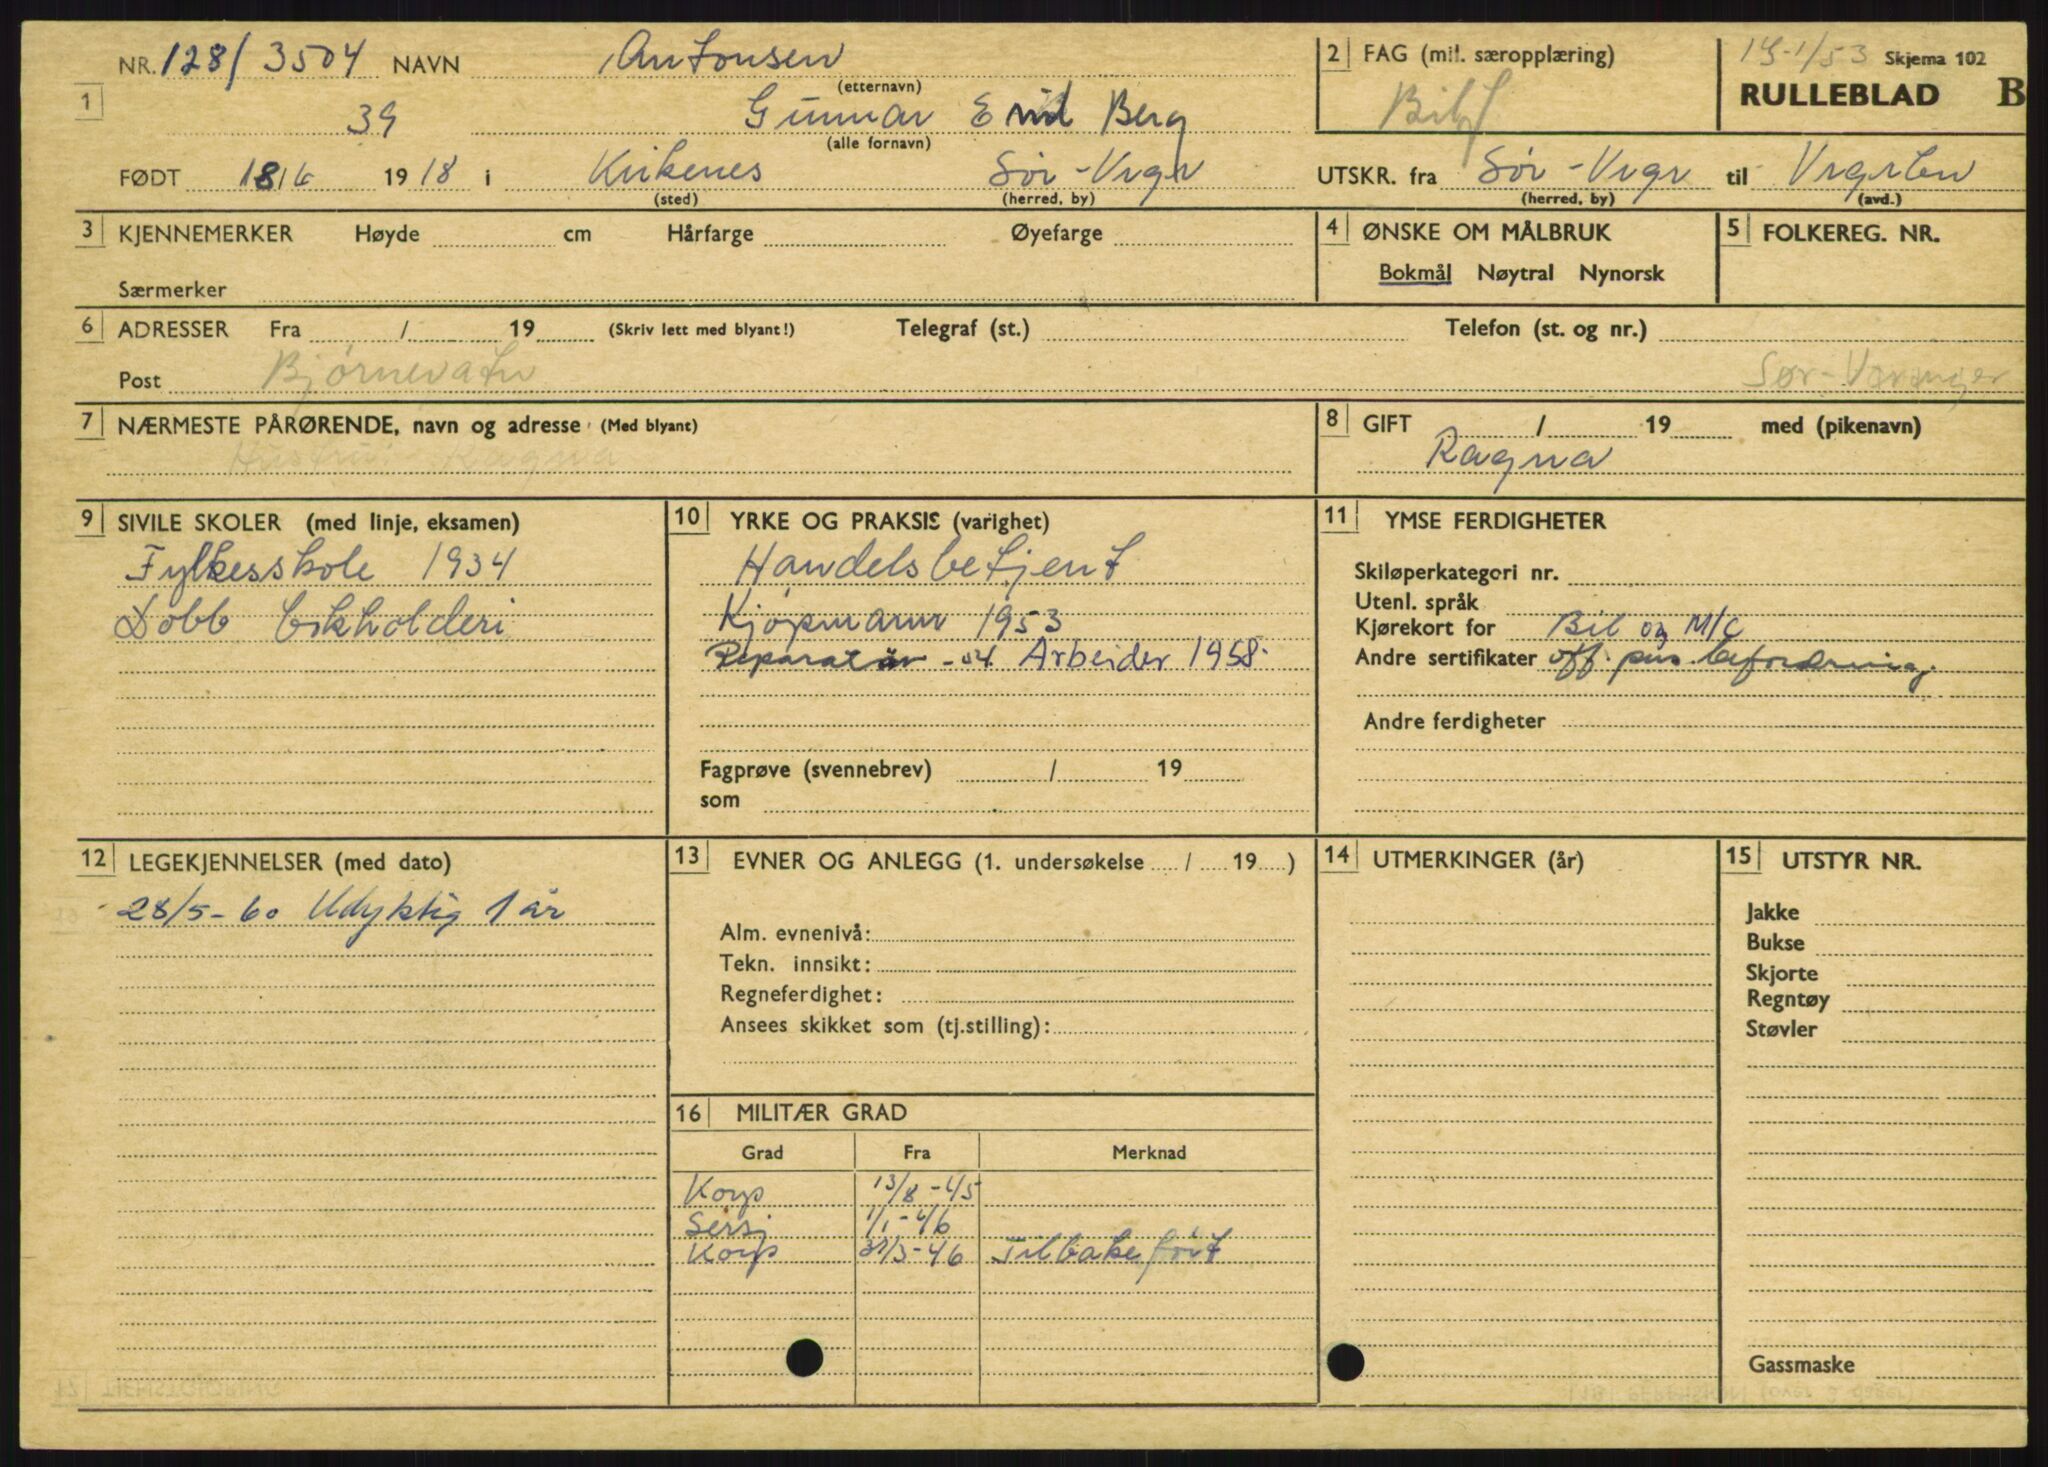 NR. 128/3504 NAVN Antonsen
(etternavn)
1 39 Gunnar Berg
(alle fornavn)
FØDT 1916 1918 i Kirkenes Sør-Vrgr
(sted) (herred, by)
2 FAG (mil. særopplæring)
Bilf
1/53 Skjema 102
RULLEBLAD B
UTSKR. fra Sør-Vrgr til Vrgrbn
(herred, by) (avd.)
3 KJENNEMERKER Høyde cm Hårfarge Øyefarge
Særmerker
4 ØNSKE OM MÅLBRUK
Bokmål Nøytral Nynorsk
5 FOLKEREG. NR.
6 ADRESSER Fra / 19 (Skriv lett med blyant!) Telegraf (st.) Telefon (st. og nr.)
Post Bjørnevatn Sør-Varanger
7 NÆRMESTE PÅRØRENDE, navn og adresse (Med blyant)
Hustru: Ragna
8 GIFT / 19 med (pikenavn)
Ragna
9 SIVILE SKOLER (med linje, eksamen)
Fylkesskole 1934
Dobb bokholderi
10 YRKE OG PRAKSIS (varighet)
Handelsbetjent
Kjøpmann 1953
Reparatør -54 Arbeider 1958.
Fagprøve (svennebrev) / 19
som
11 YMSE FERDIGHETER
Skiløperkategori nr.
Utenl. språk
Kjørekort for Bil og M/C
Andre sertifikater off. pers. befordring.
Andre ferdigheter
12 LEGEKJENNELSER (med dato)
28/5-60 Udyktig 1 år
13 EVNER OG ANLEGG (1. undersøkelse / 19 )
Alm. evnenivå:
Tekn. innsikt:
Regneferdighet:
Ansees skikket som (tj.stilling):
14 UTMERKINGER (år)
15 UTSTYR NR.
Jakke
Bukse
Skjorte
Regntøy
Støvler
Gassmaske
16 MILITÆR GRAD
Grad Fra Merknad
Korp 13/8-45
Sersj 1/1-46
Korp 31/3-46 Tilbakeført